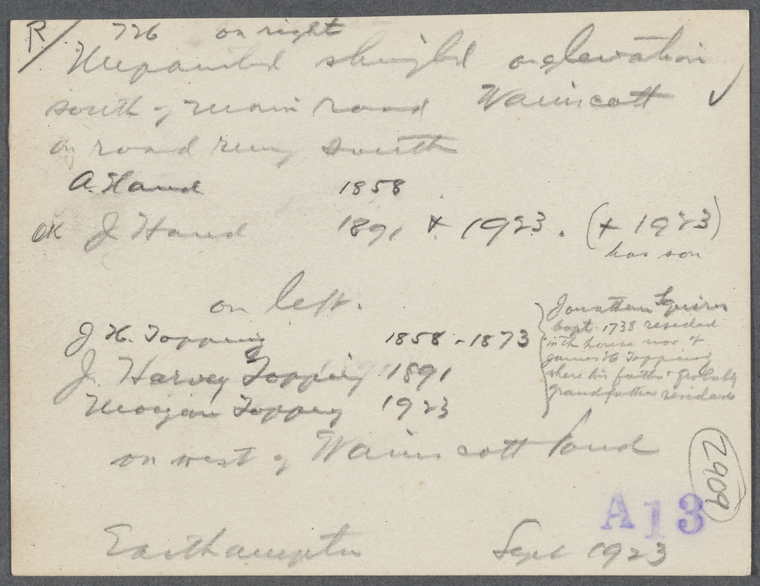 R/ 726 on right
Unpainted shingled on elevation
south of main road Wainscott ✓
on road runy south
A. Hand 1858
OK J Hand 1891 + 1923. (+ 1923)
has son
on left.
J. H. Topping 1858-1873
J. Harvey Topping 1891
Morgan Topping 1923
Jonathan Squires
bapt. 1738 resided
in the house now of
James H Topping
where his father & probably
grandfather resided
on west of Wainscott Pond
2909
A13
Easthampton Sept 1923